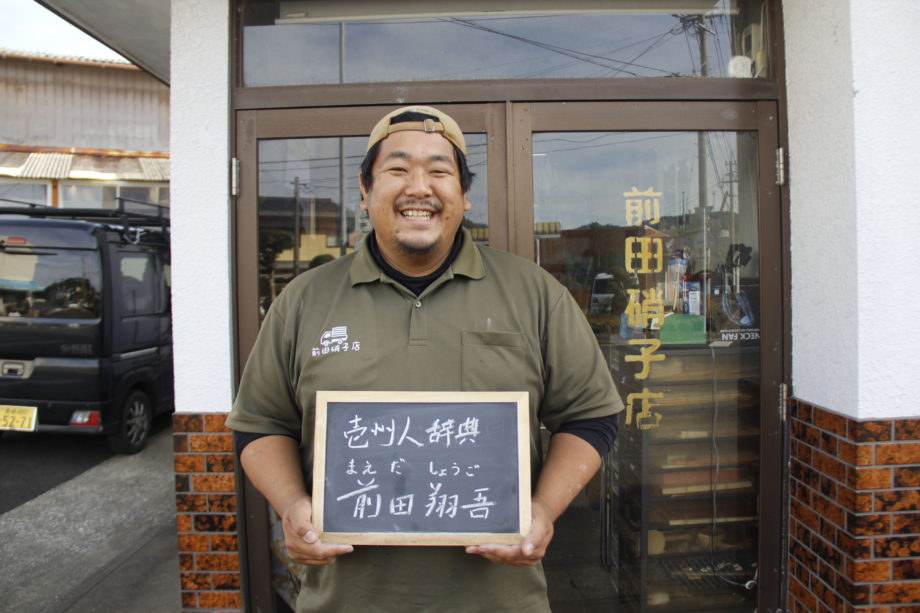 前田硝子店
前田硝子店
壱州人辞典
まえだ しょうご
前田翔吾
NECK FAN
52-71